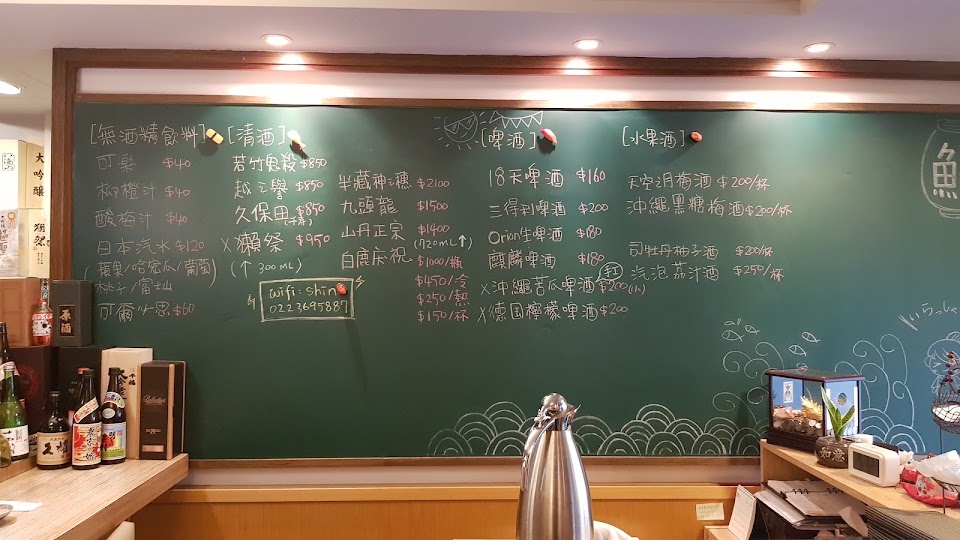 [無酒精飲料]
可樂 $40
柳橙汁 $40
酸梅汁 $40
日本汽水 $120
(蘋果/哈密瓜/葡萄
桃子/富士山)
可爾必思 $60
[清酒]
若竹鬼殺 $850
越之譽 $850
久保田 $850
(千壽)
X 獺祭 $950
(↑ 300ML)
wifi:shin
0223695887
半藏神之穗 $2100
九頭龍 $1500
山丹正宗 $1400
(720ML↑)
白鹿庆祝 $1000/瓶
$450/冷
$250/熱
$150/杯
[啤酒]
18天啤酒 $160
三得利啤酒 $200
Orion生啤酒 $180
麒麟啤酒 $180
X 沖繩苦瓜啤酒 $200
X 德国檸檬啤酒 $200
[水果酒]
天空之月梅酒 $200/杯
沖繩黑糖梅酒 $200/杯
司牡丹柚子酒 $200/杯
汽泡荔汁酒 $250/杯
魚
いらっしゃ
大吟釀
原酒
如意